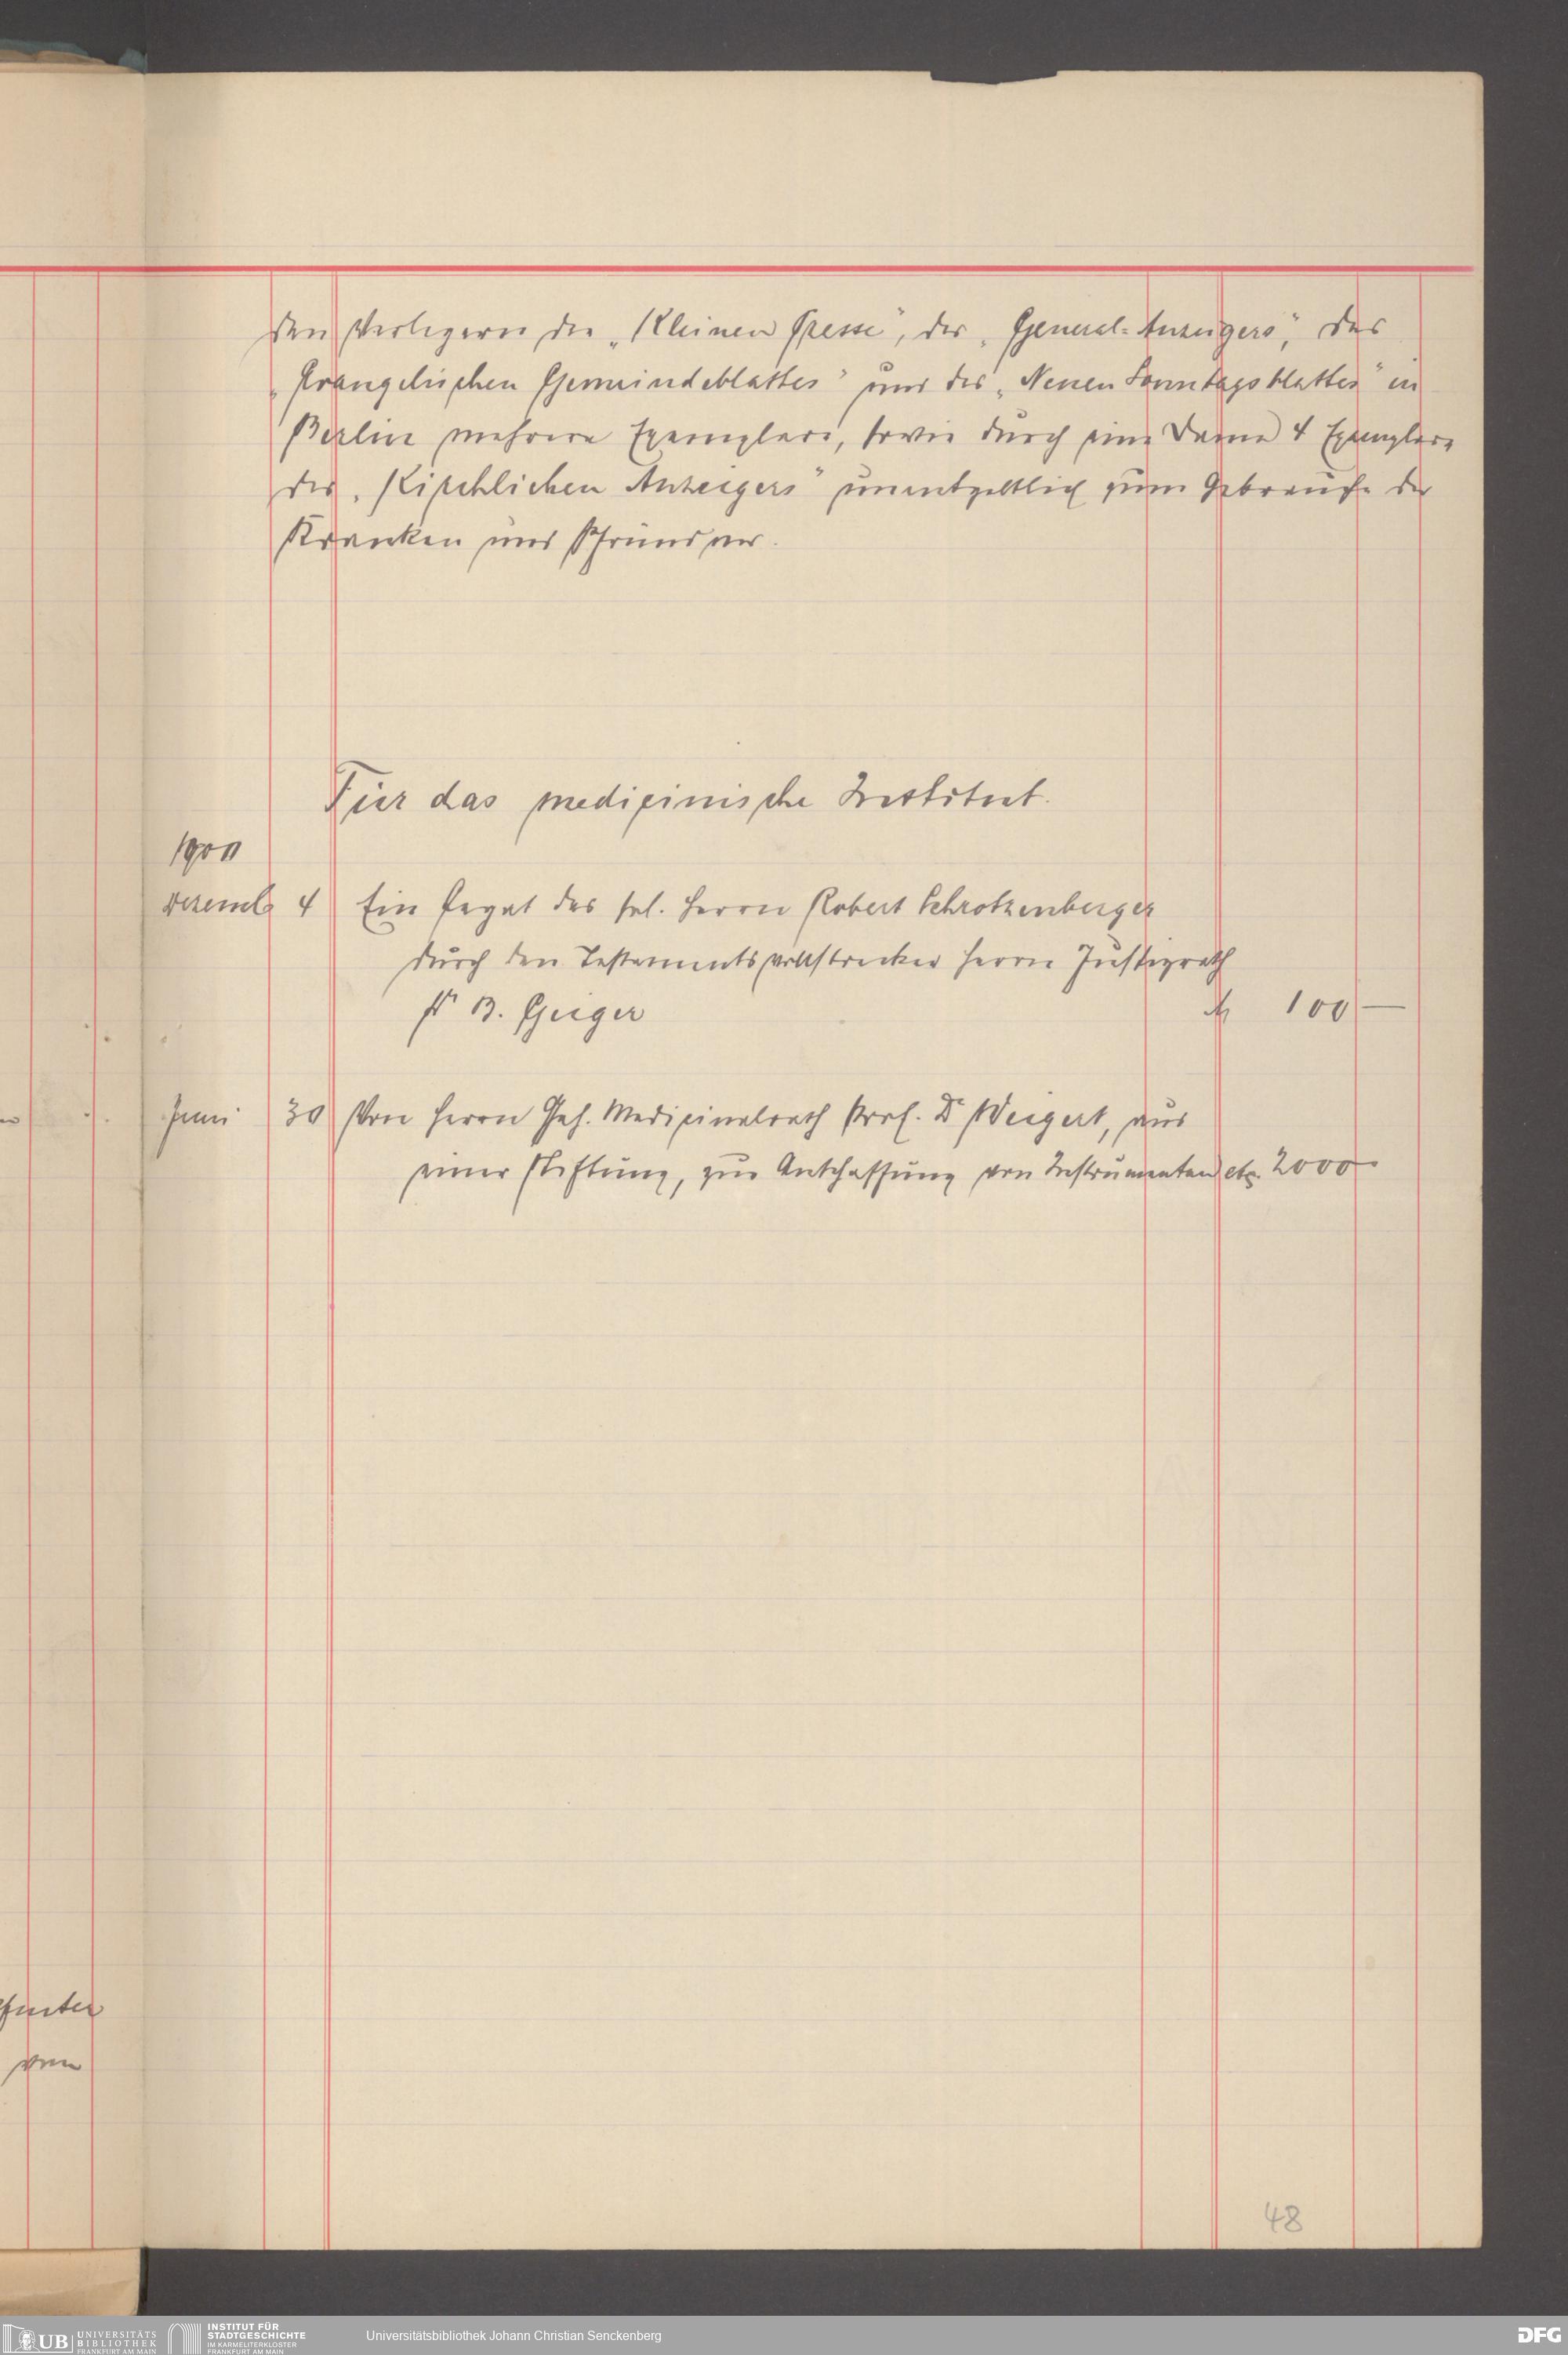 den Verlegern der „Kleinen Presse", des „General-Anzeigers", des
„Evangelischen Gemeindeblattes" und des „Neuen Sonntagsblattes" in
Berlin mehrere Exemplare, sowie durch eine Dame 4 Exemplare
des „Kirchlichen Anzeigers" unentgeltlich zum Gebrauche der
Kranken und Pfründner.
Für das medicinische Institut.
1900
Dezemb 4 Ein Legat des sel. Herrn Robert Schrotzenberger
durch den Testamentsvollstrecker Herrn Justizrath
Dr B. Geiger M 100 —
Juni 30 Von Herrn Geh. Medicinalrath Prof. Dr Weigert, aus
einer Stiftung, zur Anschaffung von Instrumenten etc. 2000 —
von
48
UB UNIVERSITÄTS
BIBLIOTHEK
FRANKFURT AM MAIN
INSTITUT FÜR
STADTGESCHICHTE
IM KARMELITERKLOSTER
FRANKFURT AM MAIN
Universitätsbibliothek Johann Christian Senckenberg
DFG